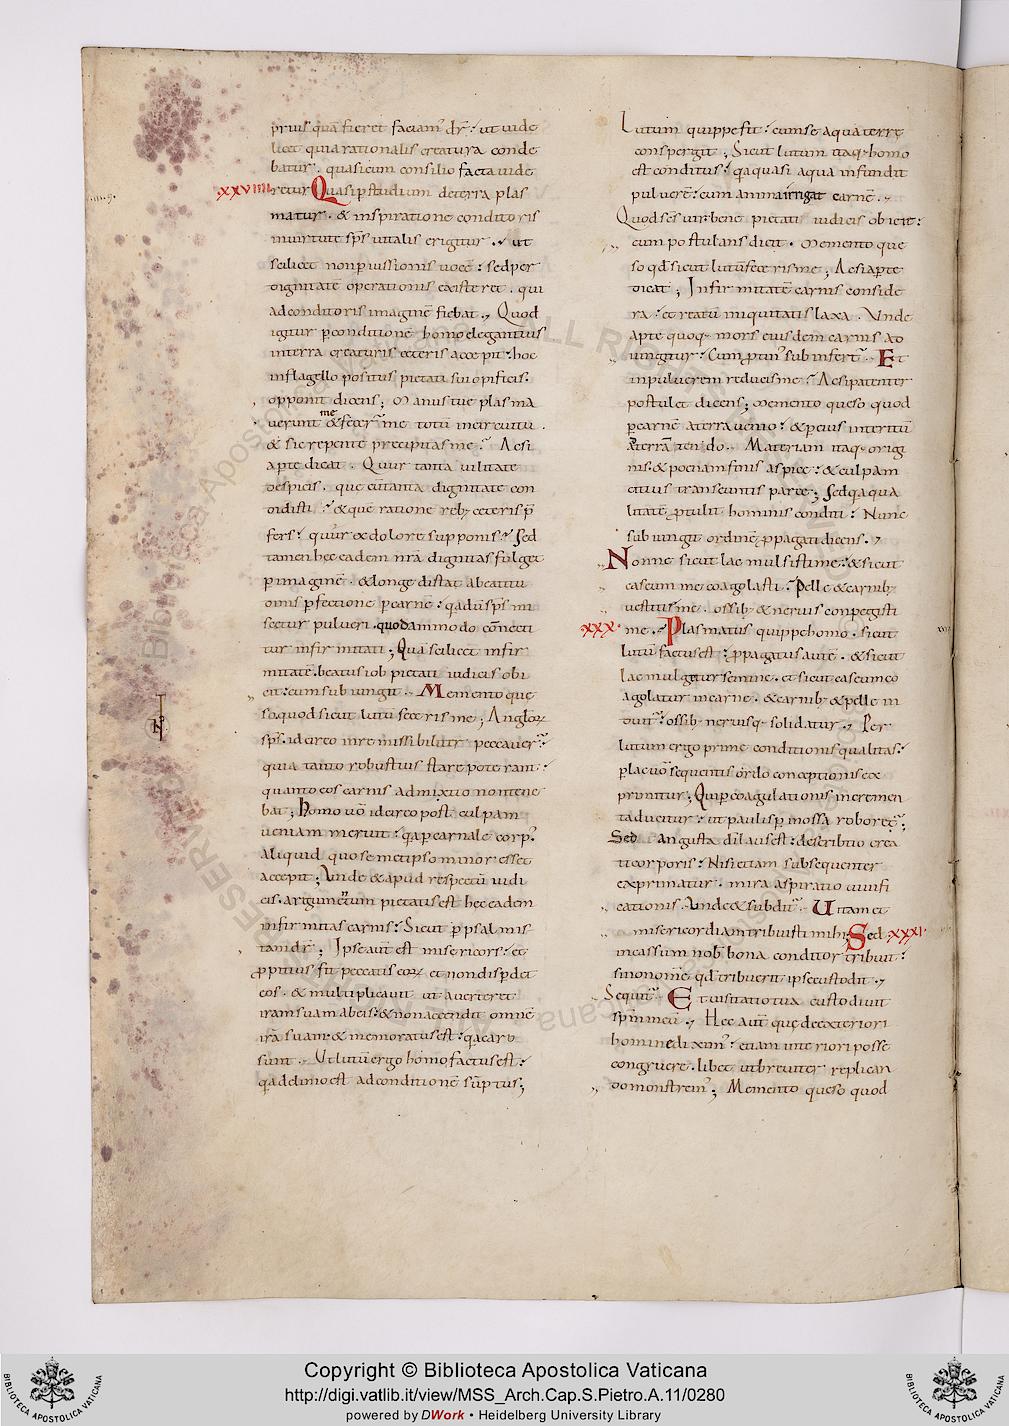 prius quā fieret faciam' dr̄. ut uide
licet quia rationalis creatura conde
batur. quasi cum consilio facta uide
xxviiii retur Quasi p studium de terra plas
matur. & inspiratione conditoris
in uirtute sp̄s uitalis erigitur. ut
scilicet non p iussionis uocē: sed per
dignitatē operationis existeret. qui
ad conditoris imaginē fiebat. Quod
igitur p conditionē homo elegantius
in terra creaturis ceteris accepit: hoc
in flagello positus pietati sui opificis.
opponit dicens; Manus tue plasma
uerunt me & fecer̄ me totū in circuitu.
& sic repente precipitas me? Ac si
apte dicat. Quur tanta uilitate
despicis. que cū tanta dignitate con
didisti? & que ratione reb; ceteris p̄
fers? quur ex dolore supponis? Sed
tamen hec eadem nr̄a dignitas fulget
p imaginē. & longe distat a beatitu
dinis pfectione p carnē: qa dū sp̄s mi
scetur pulveri. quodammodo cōnecti
tur infirmitati; Qua scilicet infir
mitatē. beatus iob pietati iudicis obi
cit: cum subiungit. Memento que
so. quod sicut lutū feceris me; Angloꝝ
sp̄s. idcirco inremissibiliter peccauer̄.
quia tanto robustius stare poterant:
quanto eos carnis admixtio non tene
bat; Homo uō idcirco post culpam
ueniam meruit: qa p carnale corp'
aliquid quo semetipso minor esset
accepit; Unde & apud respectū iudi
cis. argumentum pietatis est hec eadem
infirmitas carnis: Sicut p psalmis
tam dr̄; Ipse autē est misericors. et
ppitius fit peccatis eoꝝ et non dispdet
eos. & multiplicauit ut auerteret
iram suam ab eis. & non accendit omnē
irā suam. & memoratus est: qa caro
sunt. Ut lutū ergo homo factus est:
qa de limo est ad conditionē sūptus;
Lutum quippe fit: cum se aqua terrę
conspergit; Sicut lutum itaq; homo
est conditus: qa quasi aqua infundit
pulverē: cum anima irrigat carnē.
Quod s̄c̄s uir bene pietati iudicis obicit:
cum postulans dicit. Memento que
so qd̄ sicut lutū feceris me; Ac si apte
dicat; Infirmitatē carnis conside
ra: et reatū iniquitatis laxa. Unde
apte quoq; mors eiusdem carnis ad
iungitur: Cum ptin' subinfert'. Et
in pulverem reduces me? Ac si patenter
postulet dicens; Memento queso quod
p carnē a terra uenio: & p eius interitū
ad terrā tendo. Materiam itaq; origi
nis. & poenam finis aspice: & culpam
citius transeuntis parce; Sed qa qua
litatē ptulit hominis conditi: Nunc
subiungit ordinē ppagati dicens.
Nonne sicut lac mulsisti me: & sicut
caseum me coagolasti? Pelle & carnib;
uestitisti me. ossib; & neruis conpegisti
xxx. me. Plasmatus quippe homo. sicut
lutū factus est: ppagatus autē. & sicut
lac mulgetur semine. et sicut caseum co
agolatur in carne. & carnib; & pelle in
duit': ossib; neruisq; solidatur. Per
lutum ergo prime conditionis qualitas:
p lac uō sequentis ordo conceptionis ex
primitur; Quip coagulationis incremen
ta ducitur: ut paulisp in ossa roboret';
Sed angusta dī laus est: describtio crea
ti corporis: Nisi etiam subsequenter
exprimatur. mira aspiratio uiuifi
cationis. Unde & subdit'. Uitam et
misericordiam tribuisti mihi; Sed xxxi.
incassum nob̄ bona conditor tribuit:
si non om̄e qd̄ tribuerit ipse custodit.
Sequit'. Et uisitatio tua custodiuit
sp̄m meū. Hec autē quę de exteriori
homine diximus: etiam interiori posse
congruere. libet ut breuiter replican
do monstrem'; Memento queso quod
Copyright © Biblioteca Apostolica Vaticana
http://digi.vatlib.it/view/MSS_Arch.Cap.S.Pietro.A.11/0280
powered by DWork • Heidelberg University Library